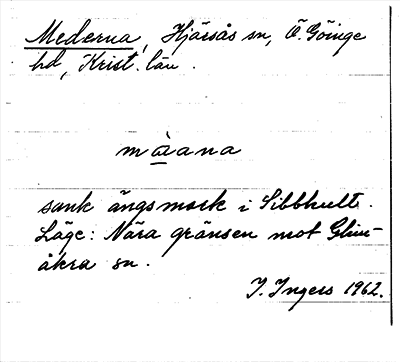 Mederna, Hjärsås sn, Ö. Göinge
hd, Krist. län.
màana
sank ängsmark i Sibbhult.
Läge: Nära gränsen mot Glim-
åkra sn.
I. Ingers 1962.